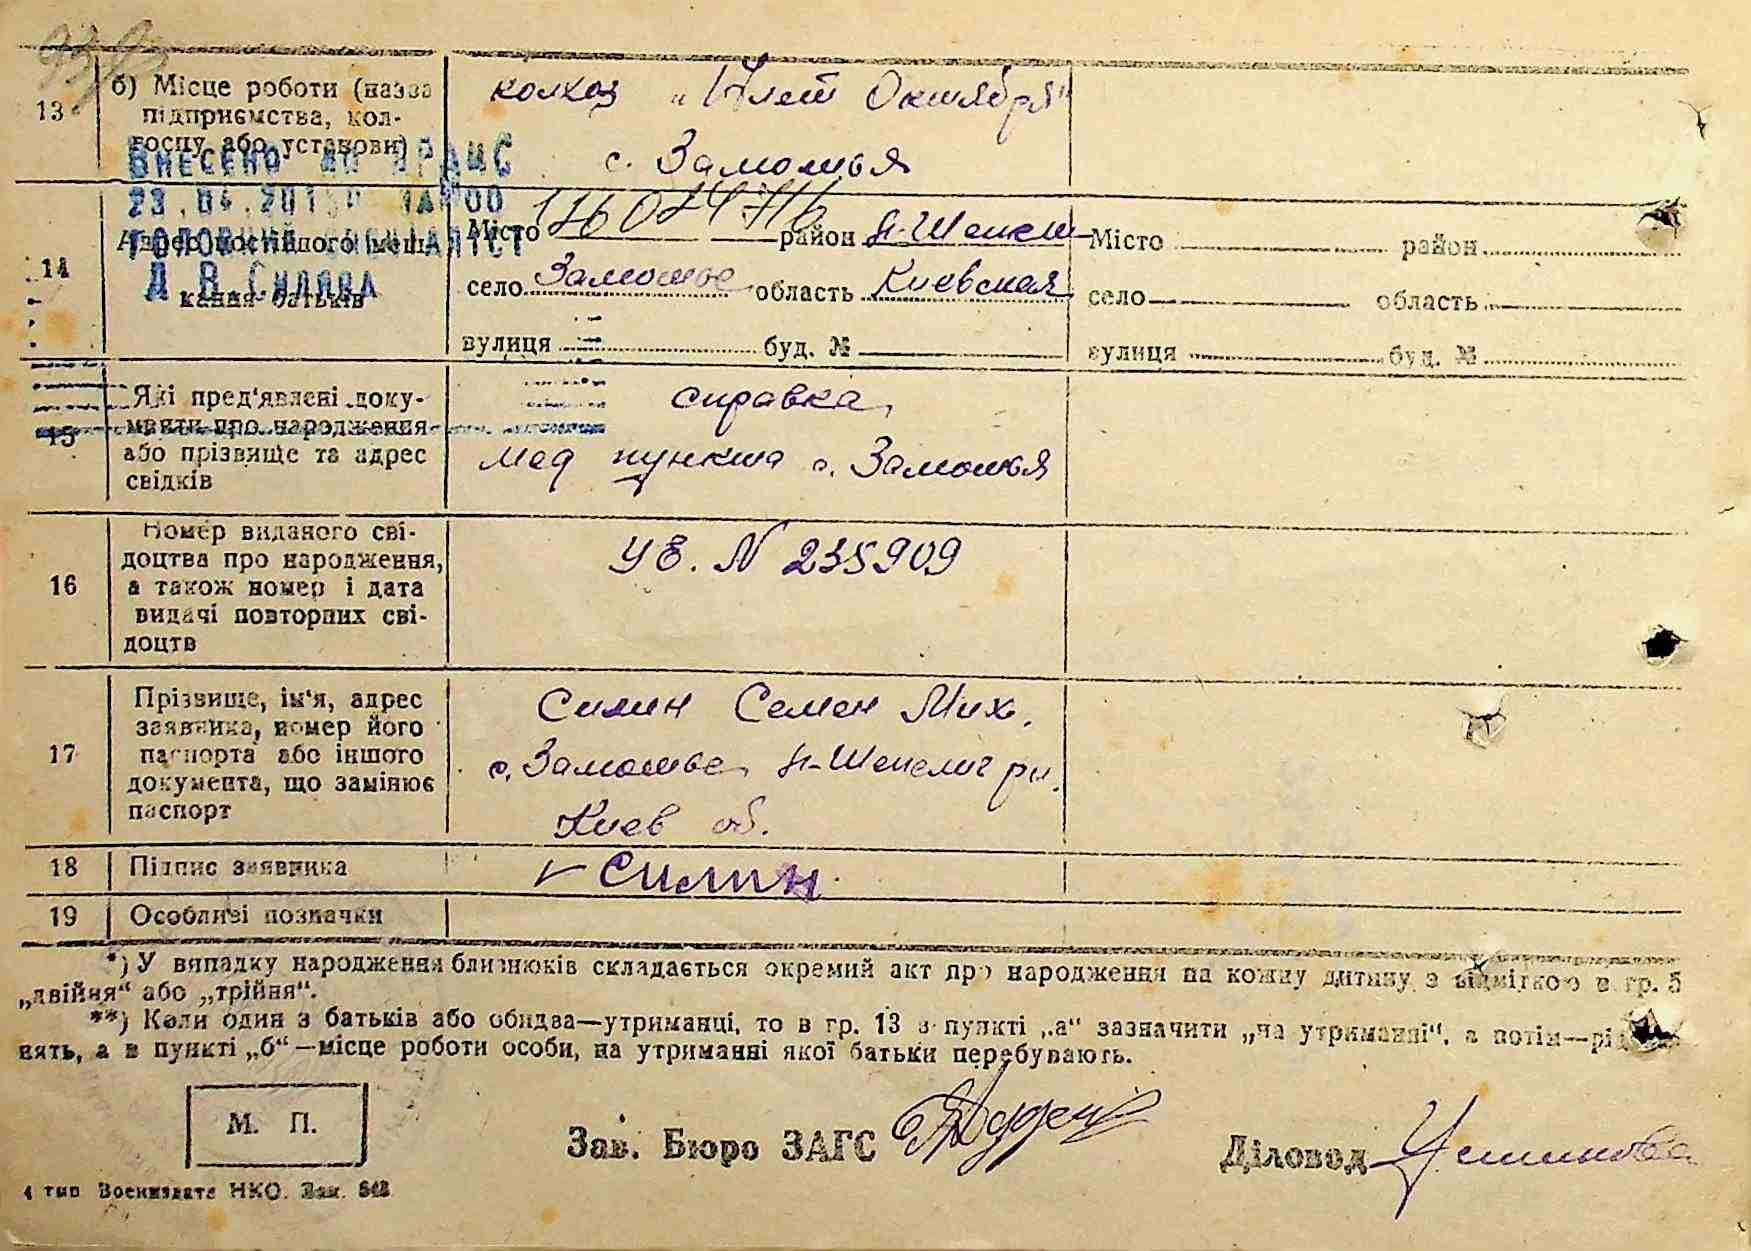 13
б) Місце роботи (назва
підприємства, кол-
госпу або установи)
колхоз „17 лет Октября“
с. Замошья
ВНЕСЕНО ДО ДРАЦС
14
Адрес постійного меш-
кання батьків
ГОЛОВНИЙ СПЕЦІАЛІСТ
Місто район н-Шепел
село Замошье область Киевская
вулиця буд. №
Місто район
село область
вулиця буд. №
15
Які пред'явлені доку-
менти про народження
або прізвище та адрес
свідків
справка
мед пункта с. Замошья
16
Номер виданого сві-
доцтва про народження,
а також номер і дата
видачі повторних сві-
доцтв
УЕ. N 235909
17
Прізвище, ім'я, адрес
заявника, номер його
паспорта або іншого
документа, що замінює
паспорт
Силин Семен Мих.
с. Замошье н-Шепелич рн.
Киев об.
18
Підпис заявника
Силин
19
Особливі позначки
*) У випадку народження близнюків складається окремий акт про народження на кожну дитину з відміткою в гр. 5
„двійня“ або „трійня“.
**) Коли один з батьків або обидва—утриманці, то в гр. 13 в пункті „а“ зазначити „на утриманні“, а потім—рід
нять, а в пункті „б“—місце роботи особи, на утриманні якої батьки перебувають.
М. П.
Зав. Бюро ЗАГС
Діловод
4 тип Воениздата НКО. Зам. 642